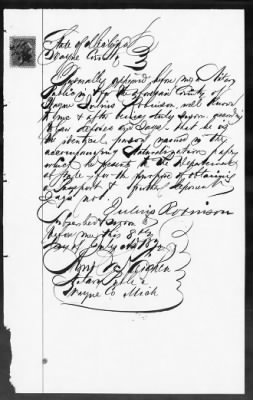 State of Michigan
Wayne County
Personally appeared before me a Notary
Public in & for the County of
Wayne Julius Robinson, well known
to me & after being duly sworn, according
to law deposes and Says that he is
the identical person named in the
accompanying Naturalization paper
which he presents to the Department
of State, for the purpose of obtaining
a Passport & further deponent
Says not.
Julius Robinson
Subscribed & Sworn to
before me this 8th
day of July
Notary Public
Wayne Co Mich